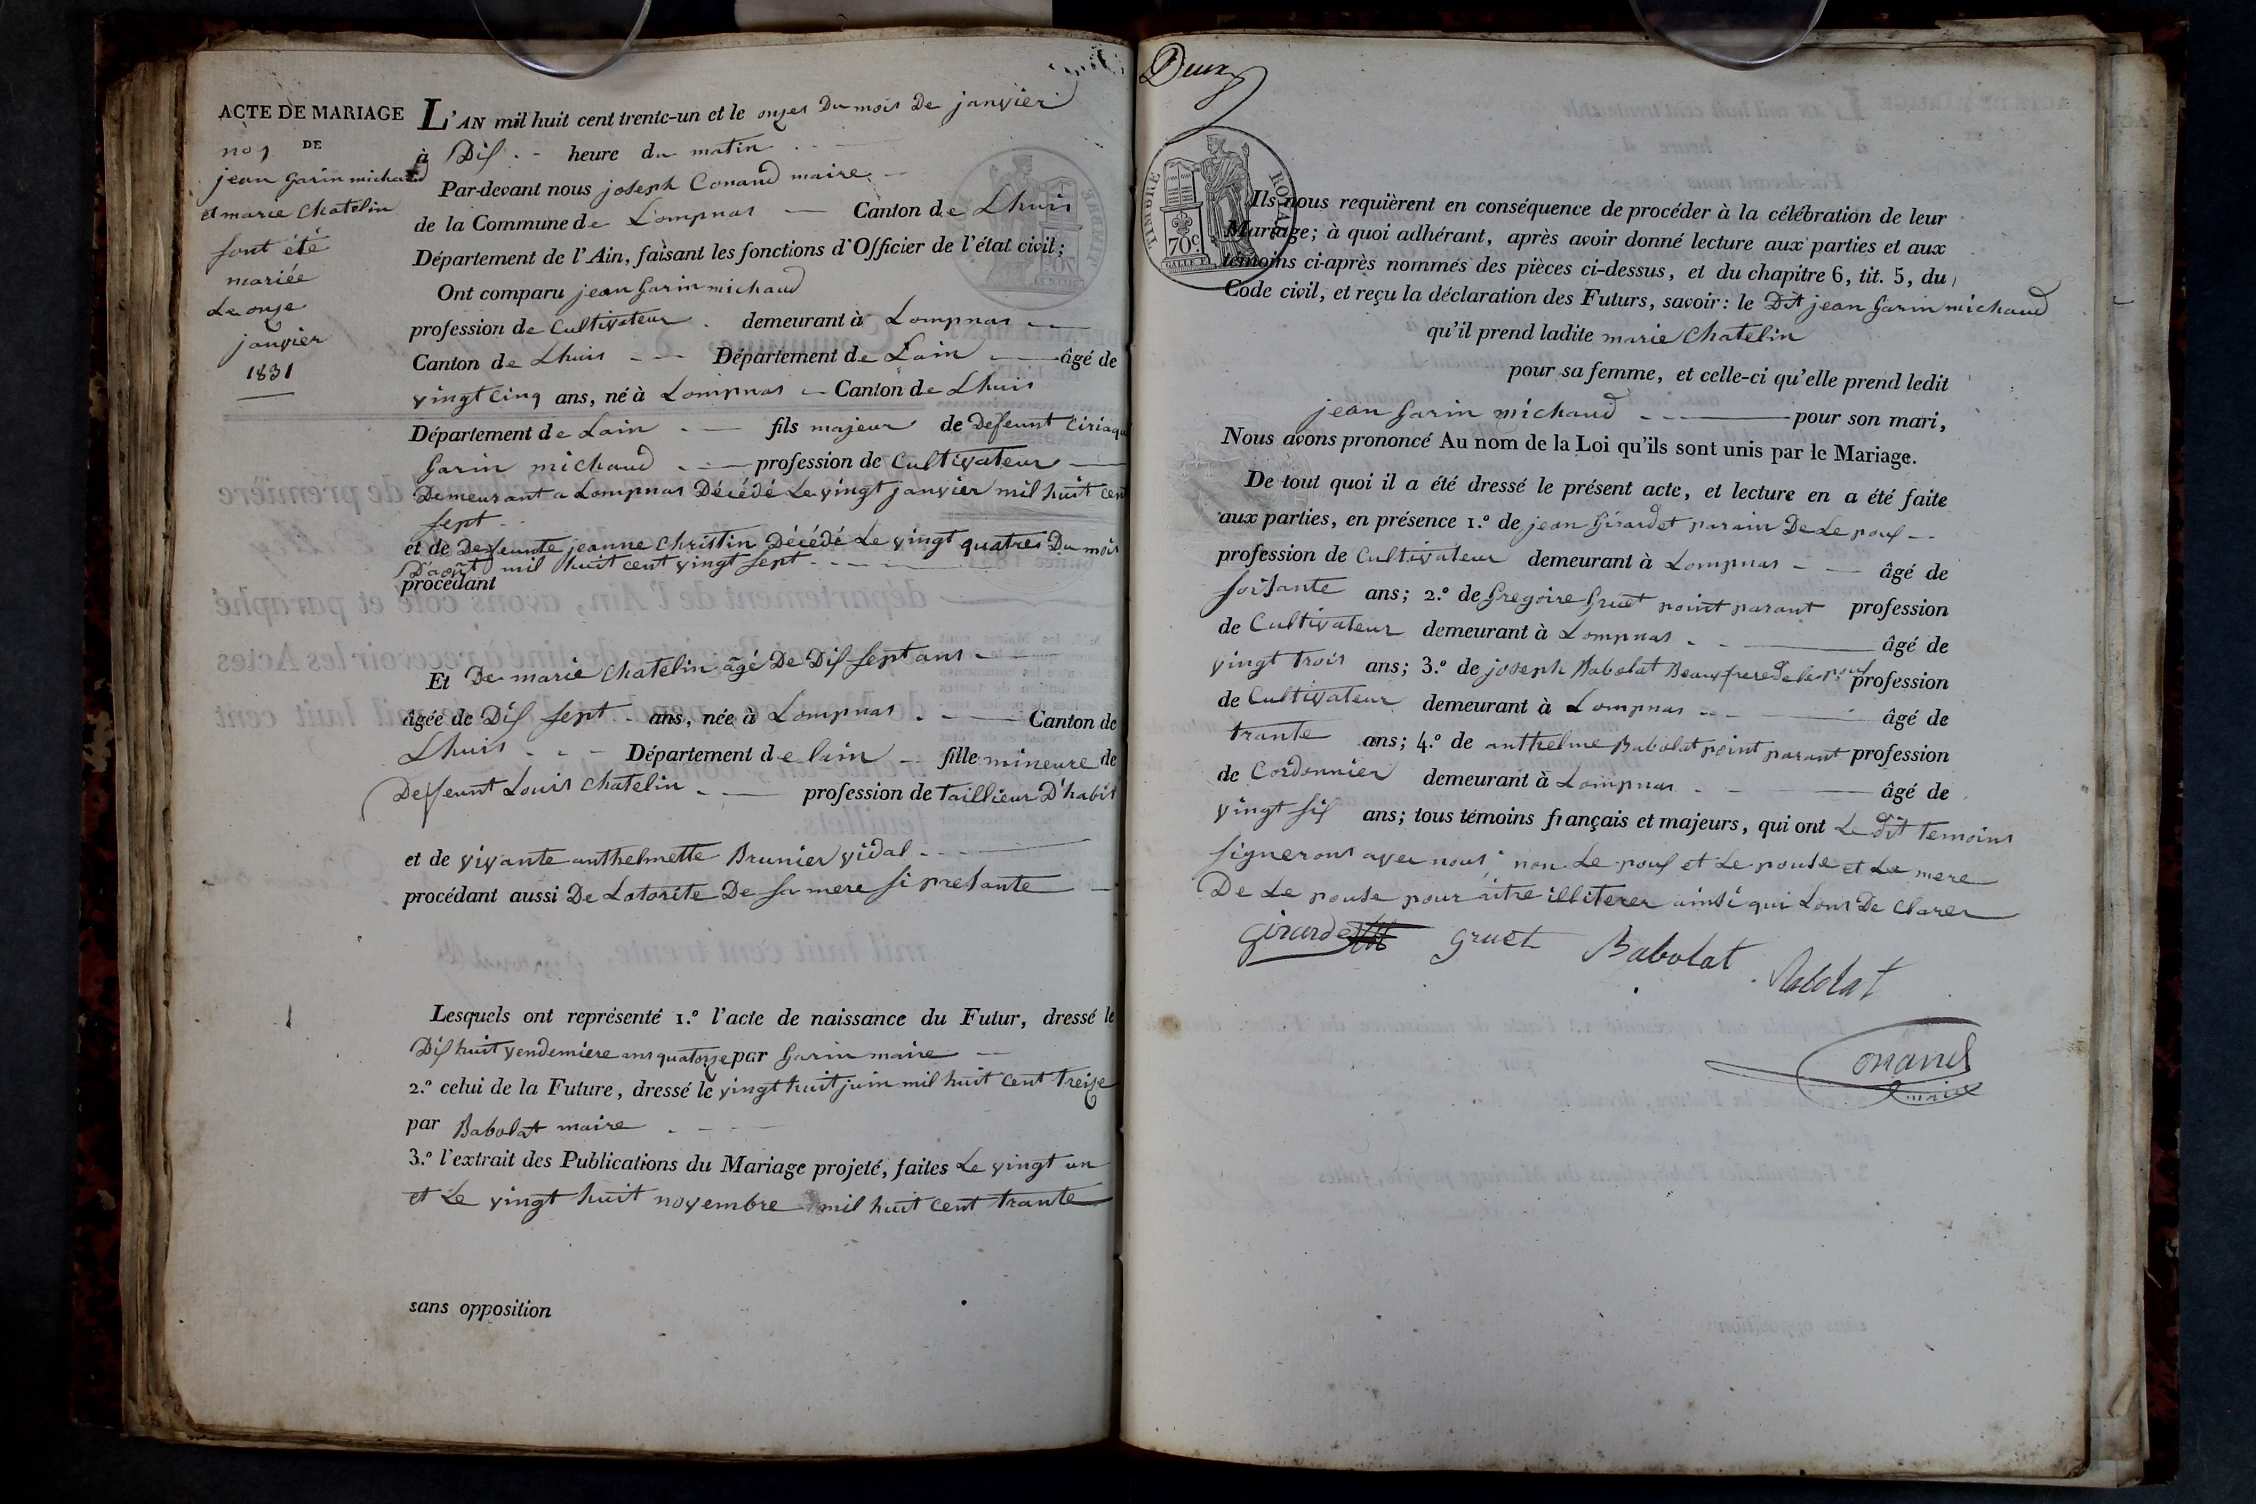 ACTE DE MARIAGE
no 1 DE
jean Garin michaud
et marie Chatelin
sont été
mariée
Le onze
janvier
1831
L'AN mil huit cent trente-un et le onzes Du mois De janvier
à Dis heure du matin
Par-devant nous joseph Conand maire
de la Commune de Lompnas Canton de Lhuis
Département de l'Ain, faisant les fonctions d'Officier de l'état civil;
Ont comparu jean Garin michaud
profession de Cultivateur demeurant à Lompnas
Canton de Lhuis Département de Lain âgé de
vingt Cinq ans, né à Lompnas Canton de Lhuis
Département de Lain fils majeur de Defeunt Ciriaque
Garin michaud profession de Cultivateur
Demeurant a Lompnas Décédé Le vingt janvier mil huit cent
sept
et de Defeunte jeanne Christin Décédé Le vingt quatres Du mois
D'août mil huit cent vingt sept
procédant
Et De marie Chatelin âgé De Dis sept ans
âgée de Dis sept ans, née à Lompnas Canton de
Lhuis Département de lain fille mineure de
Defeunt Louis Chatelin profession de Taillieur D'habit
et de vivante anthelmette Brunier vidal
procédant aussi De Lotorite De sa mere si presante
Lesquels ont représenté 1.º l'acte de naissance du Futur, dressé le
Dis huit vendemiere ans quatorze par Garin maire
2.º celui de la Future, dressé le vingt huit juin mil huit cent treize
par Babolat maire
3.º l'extrait des Publications du Mariage projeté, faites Le vingt un
et Le vingt huit novembre mil huit cent trante
sans opposition
Deux
TIMBRE ROYAL
70 c.
Ils nous requièrent en conséquence de procéder à la célébration de leur
Mariage; à quoi adhérant, après avoir donné lecture aux parties et aux
témoins ci-après nommés des pièces ci-dessus, et du chapitre 6, tit. 5, du
Code civil, et reçu la déclaration des Futurs, savoir: le Dit jean Garin michaud
qu'il prend ladite marie Chatelin
pour sa femme, et celle-ci qu'elle prend ledit
jean Garin michaud pour son mari,
Nous avons prononcé Au nom de la Loi qu'ils sont unis par le Mariage.
De tout quoi il a été dressé le présent acte, et lecture en a été faite
aux parties, en présence 1.º de jean Girardet parain De Le poux
profession de Cultivateur demeurant à Lompnas âgé de
soisante ans; 2.º de Gregoire Gruet point parant profession
de Cultivateur demeurant à Lompnas âgé de
vingt trois ans; 3.º de joseph Babolat Beaux frere de le poux profession
de Cultivateur demeurant à Lompnas âgé de
trante ans; 4.º de anthelme Babolat point parant profession
de Cordonnier demeurant à Lompnas âgé de
vingt sis ans; tous témoins français et majeurs, qui ont Le dit temoins
signerons avec nous non Le poux et Le pouse et La mere
De Le pouse pour aitre illiterer ainsi qui Lons De Clarer
Girardet gruet Babolat Babolat
Conand
maire